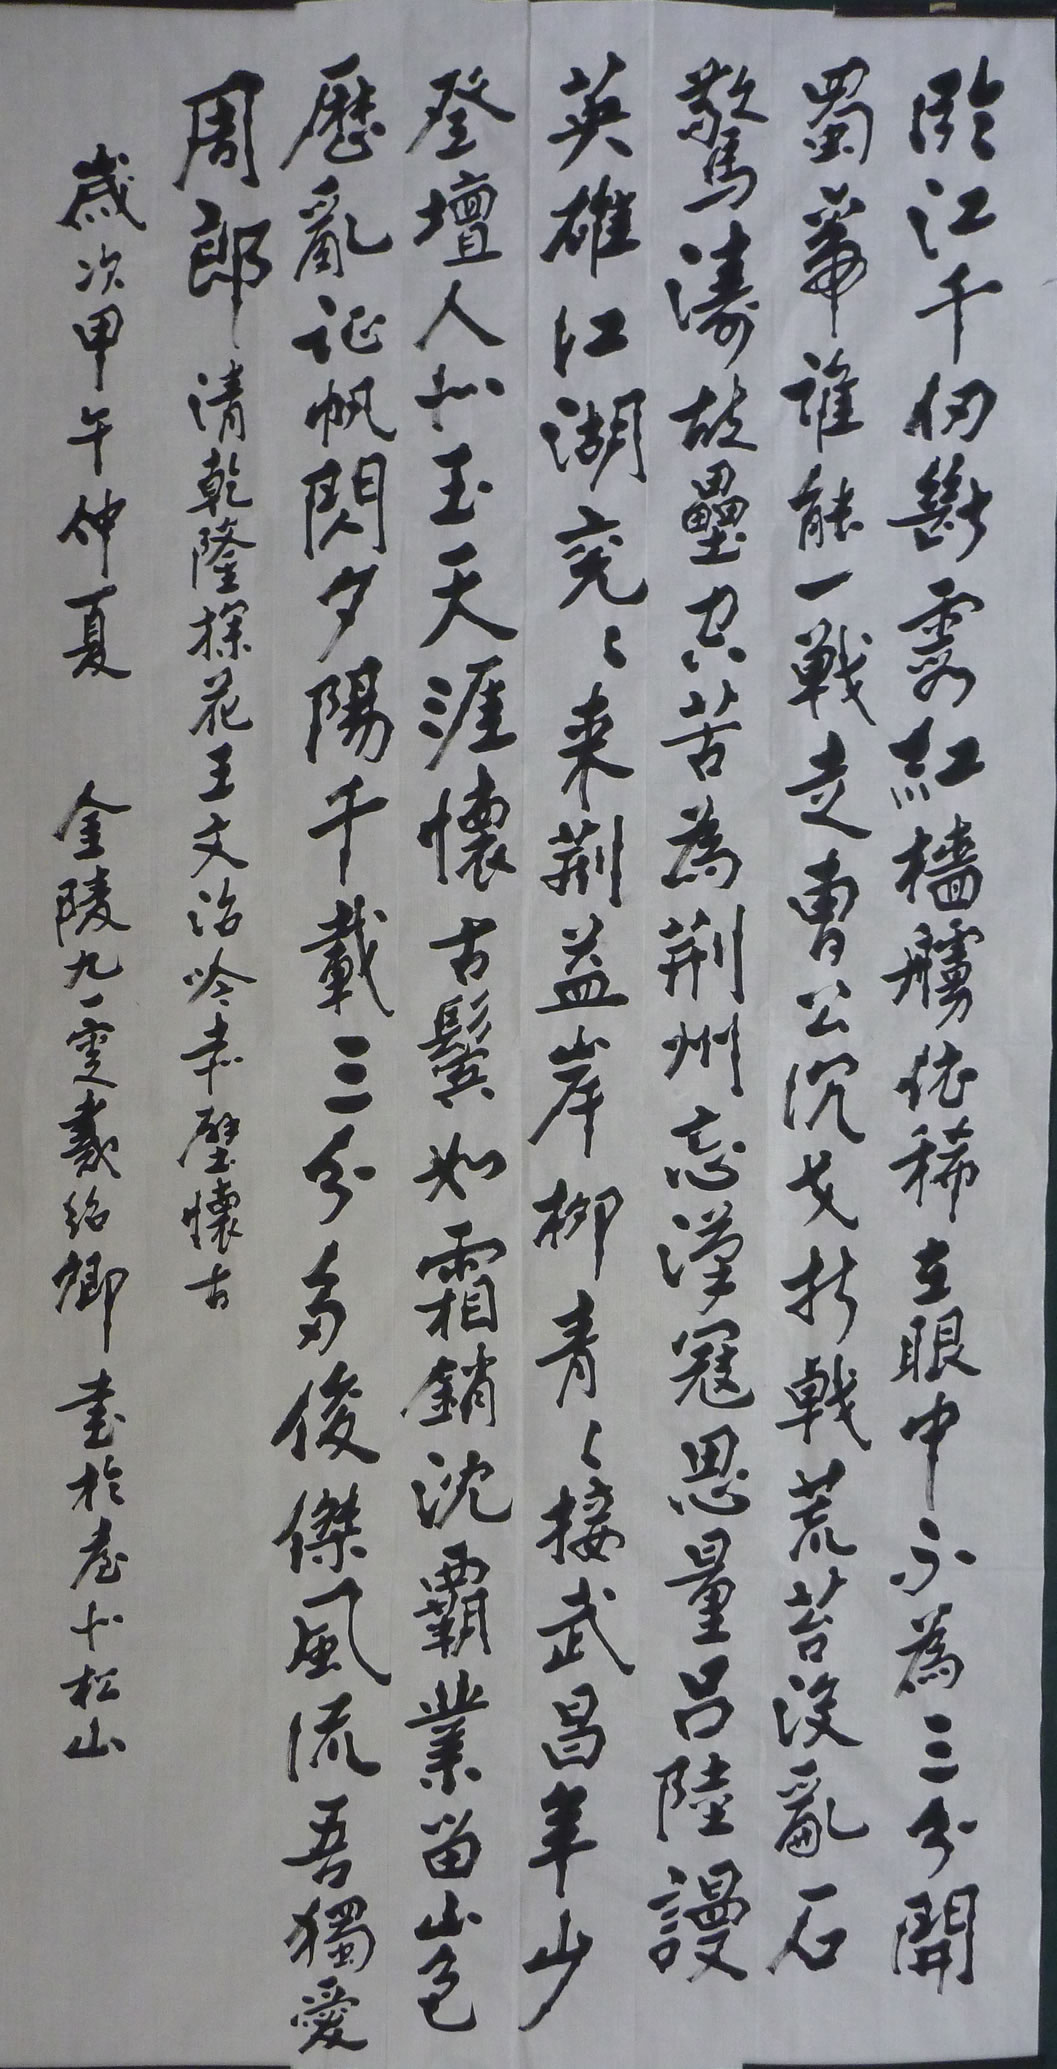 臨江千仞斷霞紅檣艣依稀在眼中不為三分開
蜀帝誰能一戰走曹公沉戈折戟荒苔沒亂石
驚濤故壘空苦為荆州忘漢寇恩量呂陸謾
英雄江湖兖〻来荆益岸柳青〻接武昌年少
登壇人似玉天涯懷古鬢如霜銷沈霸業留山色
歷亂征帆閃夕陽千載三分多俊傑風流吾獨愛
周郎 清乾隆探花王文治吟赤壁懷古
歲次甲午仲夏 金陵九一叟戴紹卿 書於老山松山